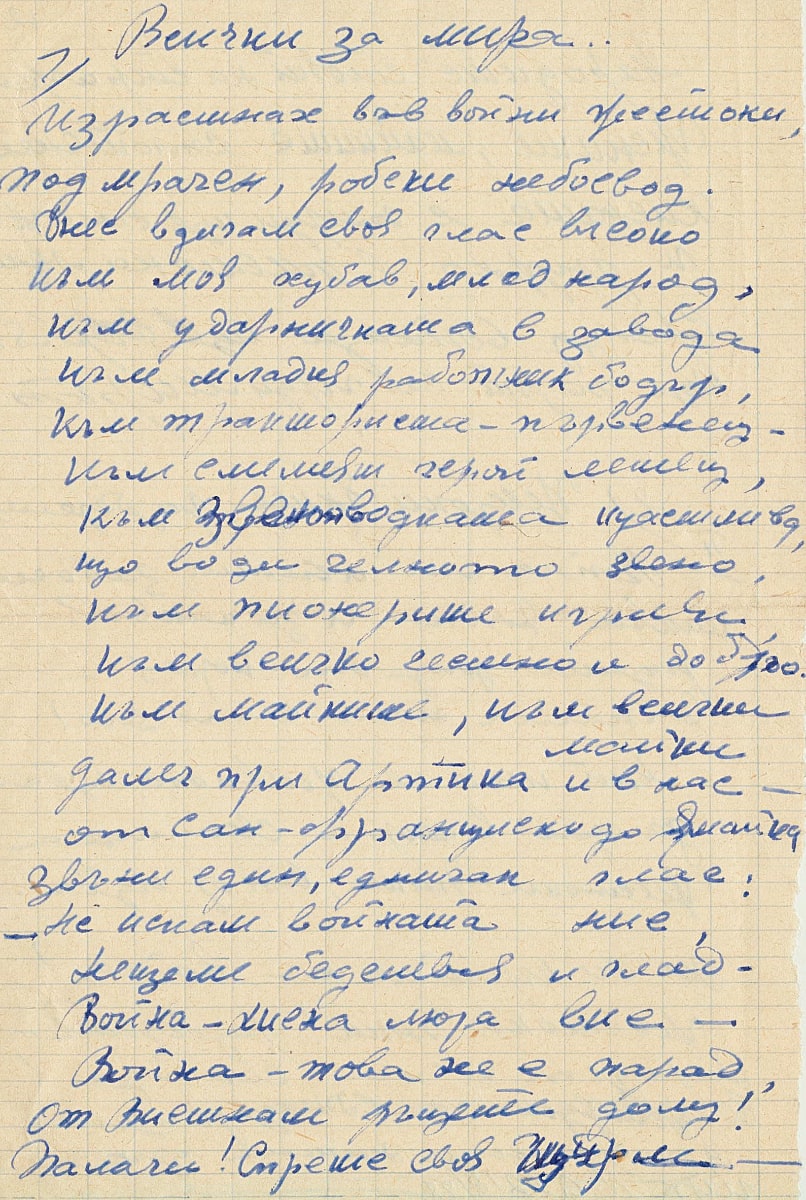 Всички за мира..
1)
Израстнах във войни жестоки,
под мрачен, робски небосвод.
Днес вдигам своя глас високо
към моя хубав, млад народ,
към ударничката в завода
към младия работник бодър,
към тракториста – първенец –
към смелият герой летец,
към звеноводката щастлива,
що води челното звено,
към пионерите игриви,
към всичко честно и добро.
към майките, към всички
майки
далеч при Арктика и в нас –
от Сан-Франциско до Ямайка
звъни един, едничак глас:
– Не искам войната ние,
нещеме бедствия и глад –
Война – хиена люта вие –
Война – това не е парад,
от Виетнам ръцете долу!
Палачи! Спрете своя